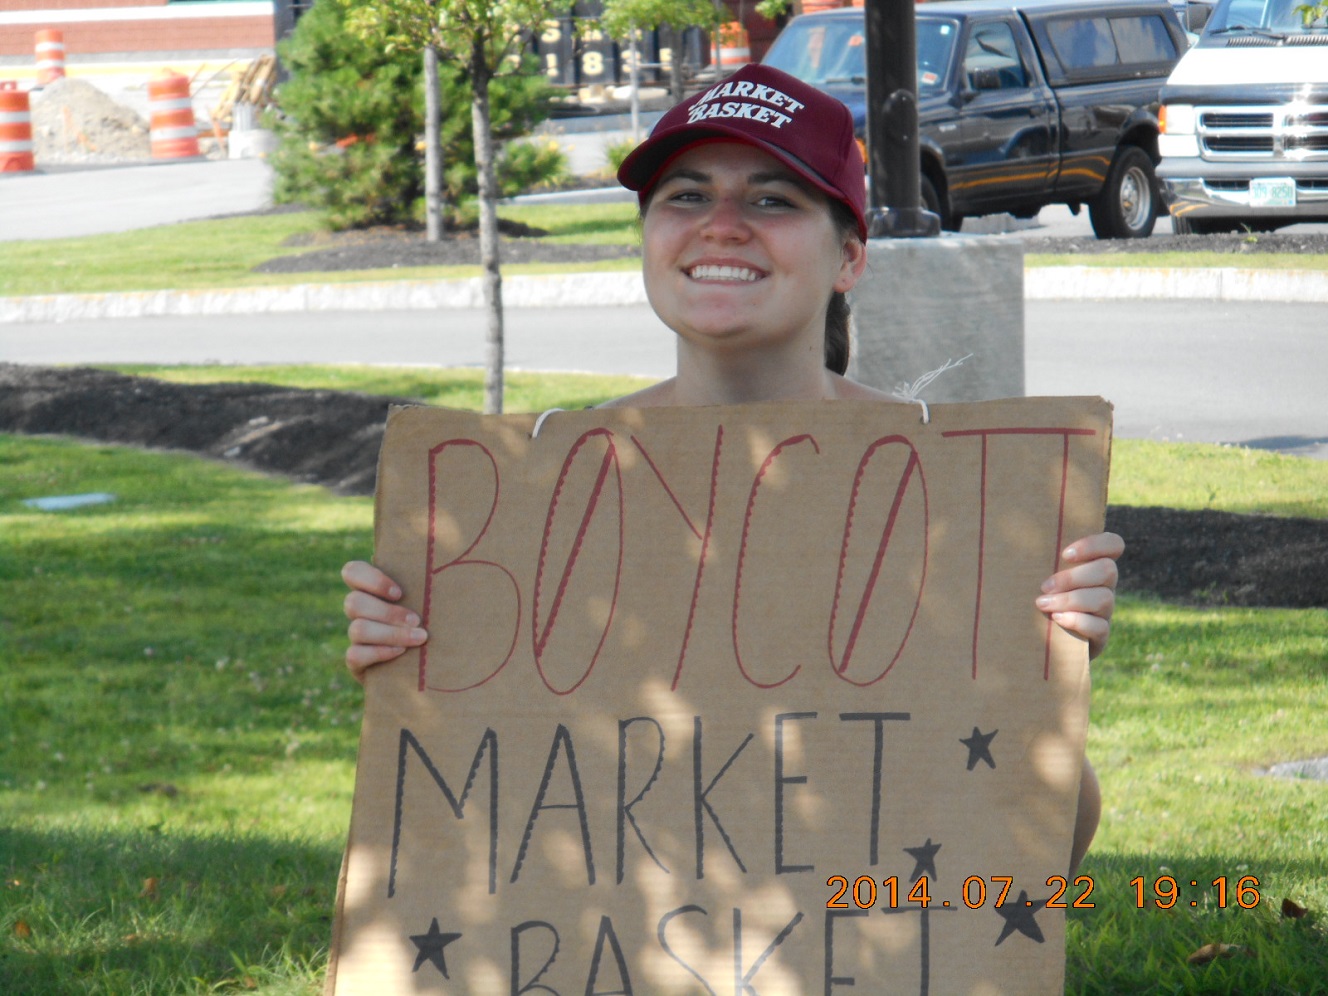 MARKET
BASKET
BOYCOTT
MARKET
BASKET
2014.07.22 19:16